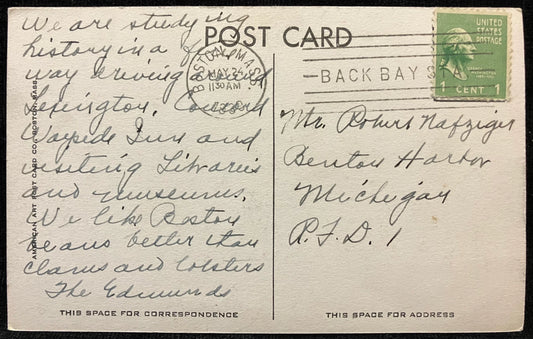 POST CARD
We are studying
history in a
way driving around
Lexington, Concord
Wayside Inn and
visiting Libraries
and museums.
We like Boston
beans better than
clams and lobsters
The Edmunds
THIS SPACE FOR CORRESPONDENCE
AMERICAN ART POST CARD CO., BOSTON, MASS.
BOSTON, MASS.
MAY
11 30 AM
BACK BAY STA
UNITED
STATES
POSTAGE
1 CENT 1
Mr. Robert Nafziger
Benton Harbor
Michigan
R.F.D. 1
THIS SPACE FOR ADDRESS